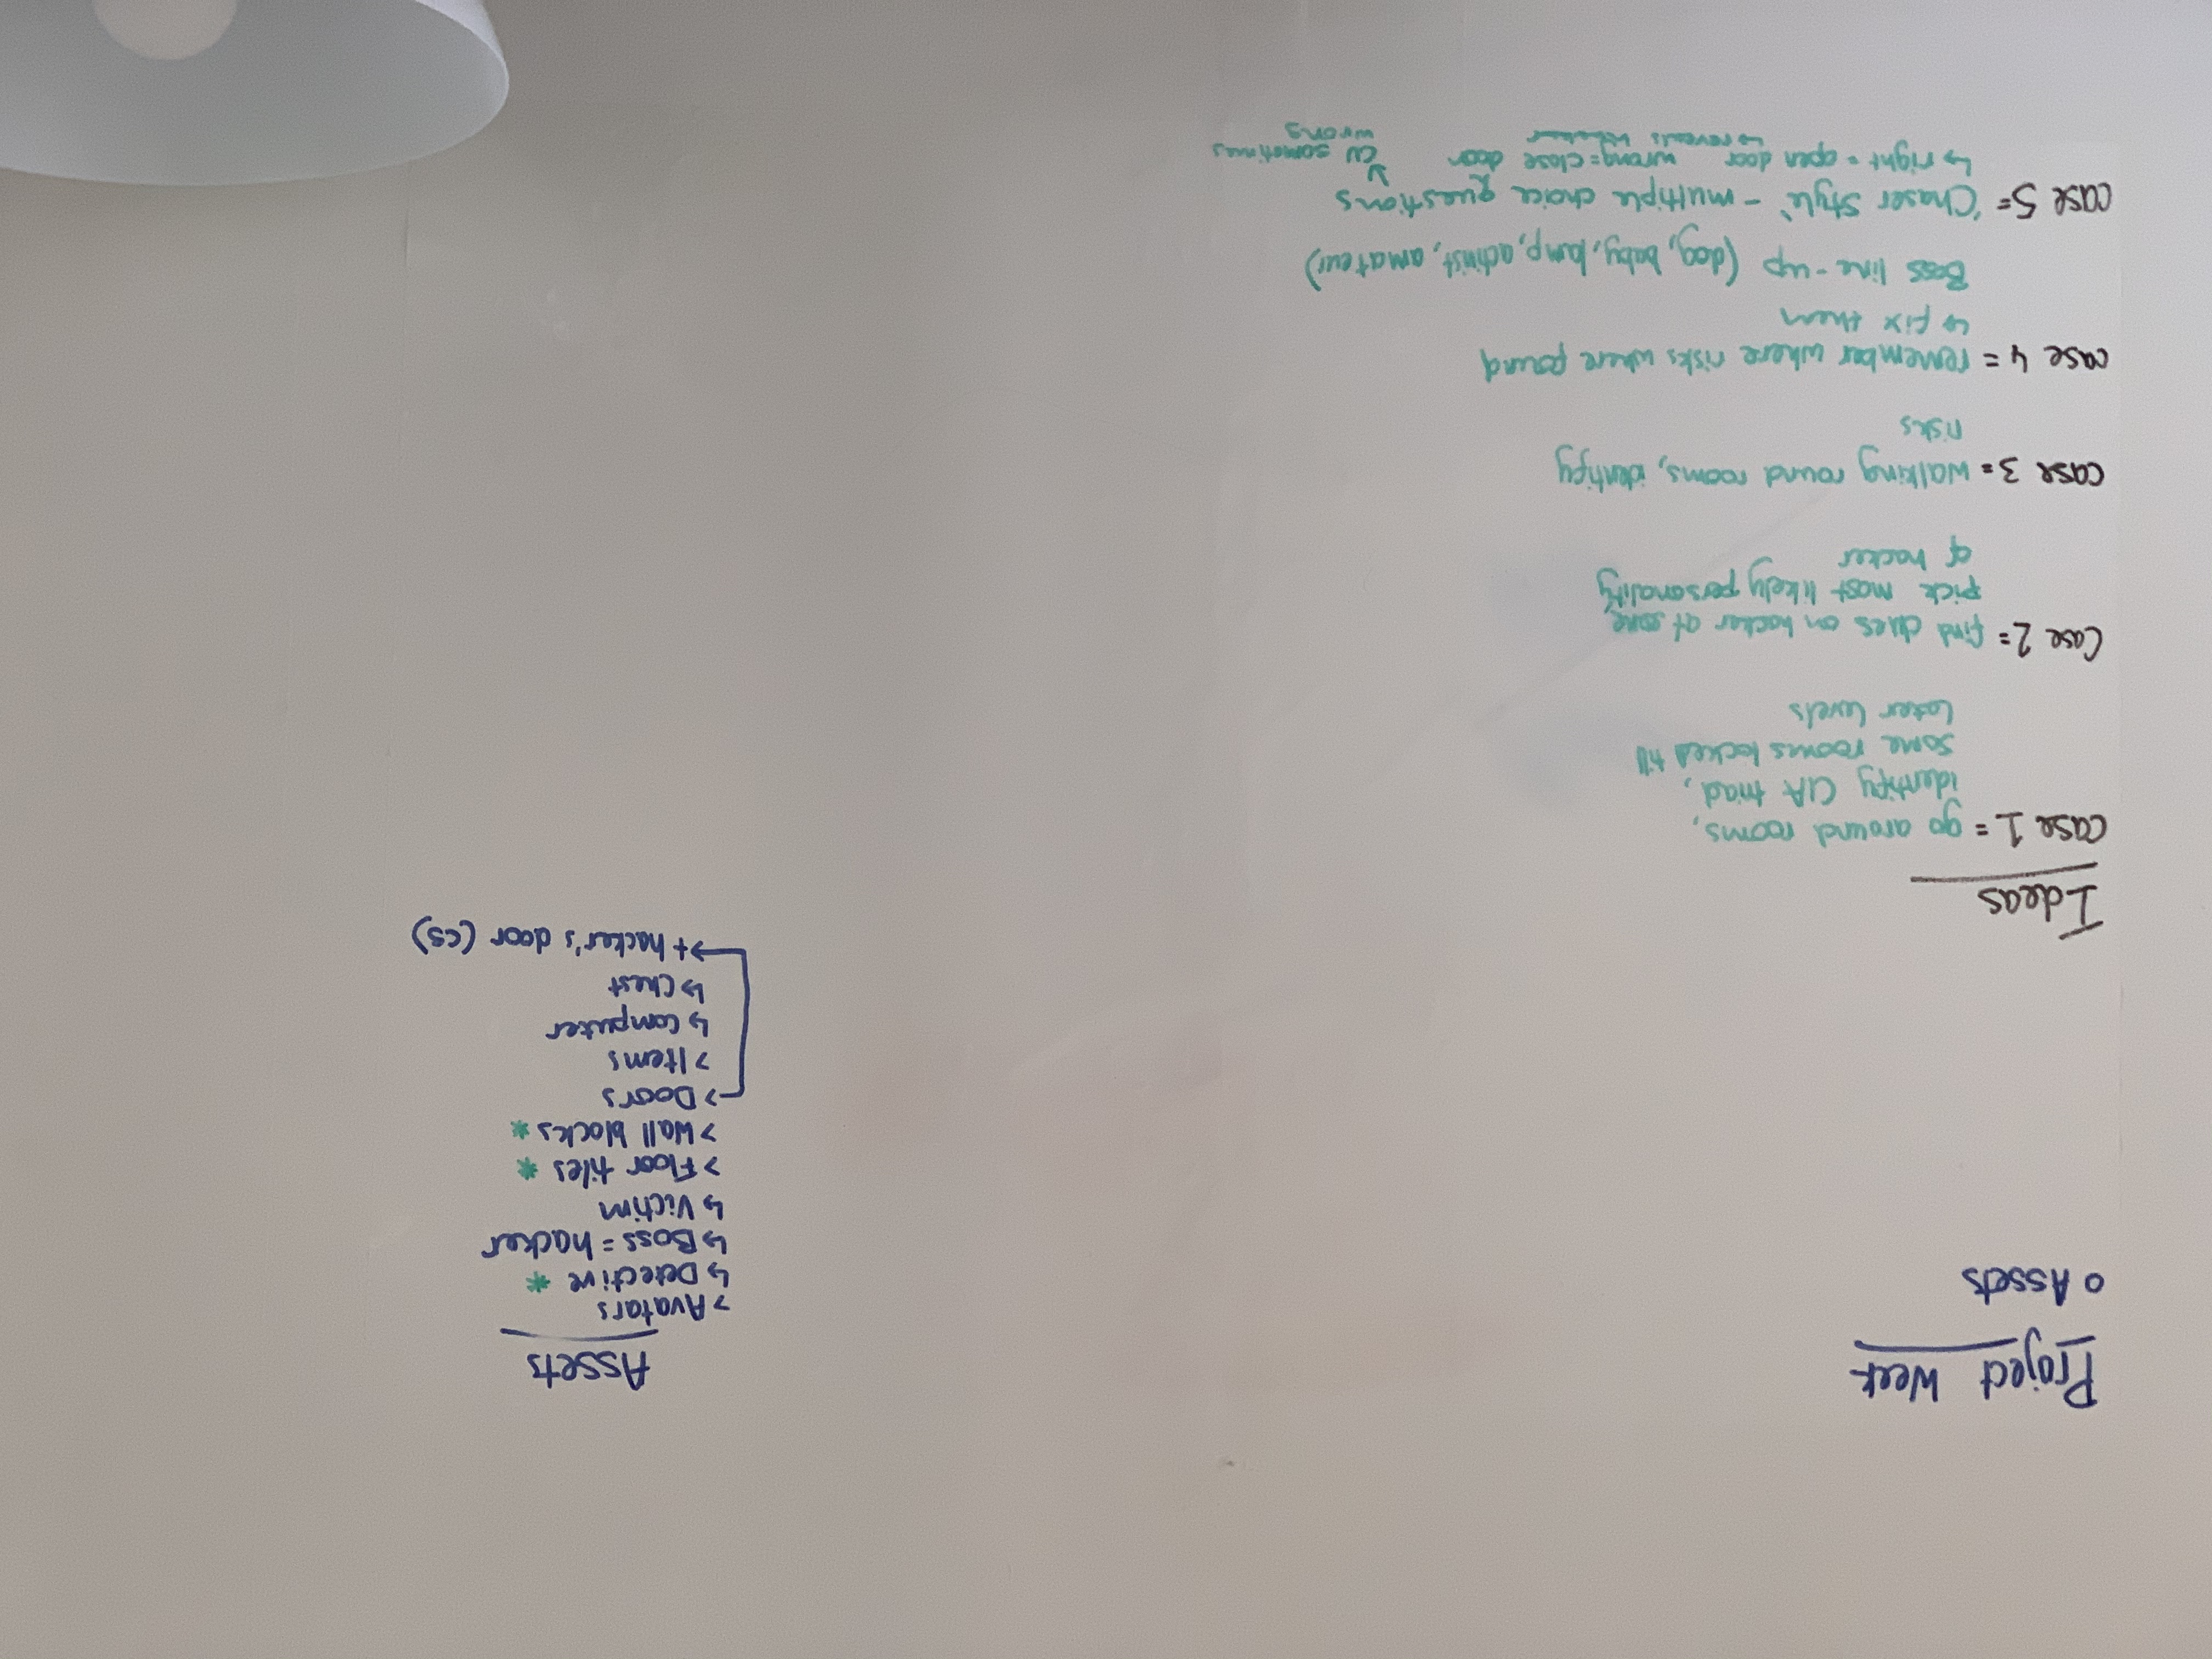 Project Week
o Assets
Ideas
case 1 = go around rooms,
identify CIA triad,
some rooms locked till
later levels
Case 2= find clues on hacker at
pick most likely personality
of hacker
case 3= walking round rooms, identify
risks
case 4 = remember where risks where found
↳ fix them
Boss line-up (dog, baby, lamp, activist, amateur)
case 5= 'Chaser Style' - multiple choice questions
↳ right = open door wrong = close door
↳ reveals
sometimes
wrong
Assets
> Avatars
↳ Detective *
↳ Boss = hacker
↳ Victim
> Floor tiles *
> Wall blocks *
> Doors
> Items
↳ Computer
↳ Chest
→ + hacker's door (CS)